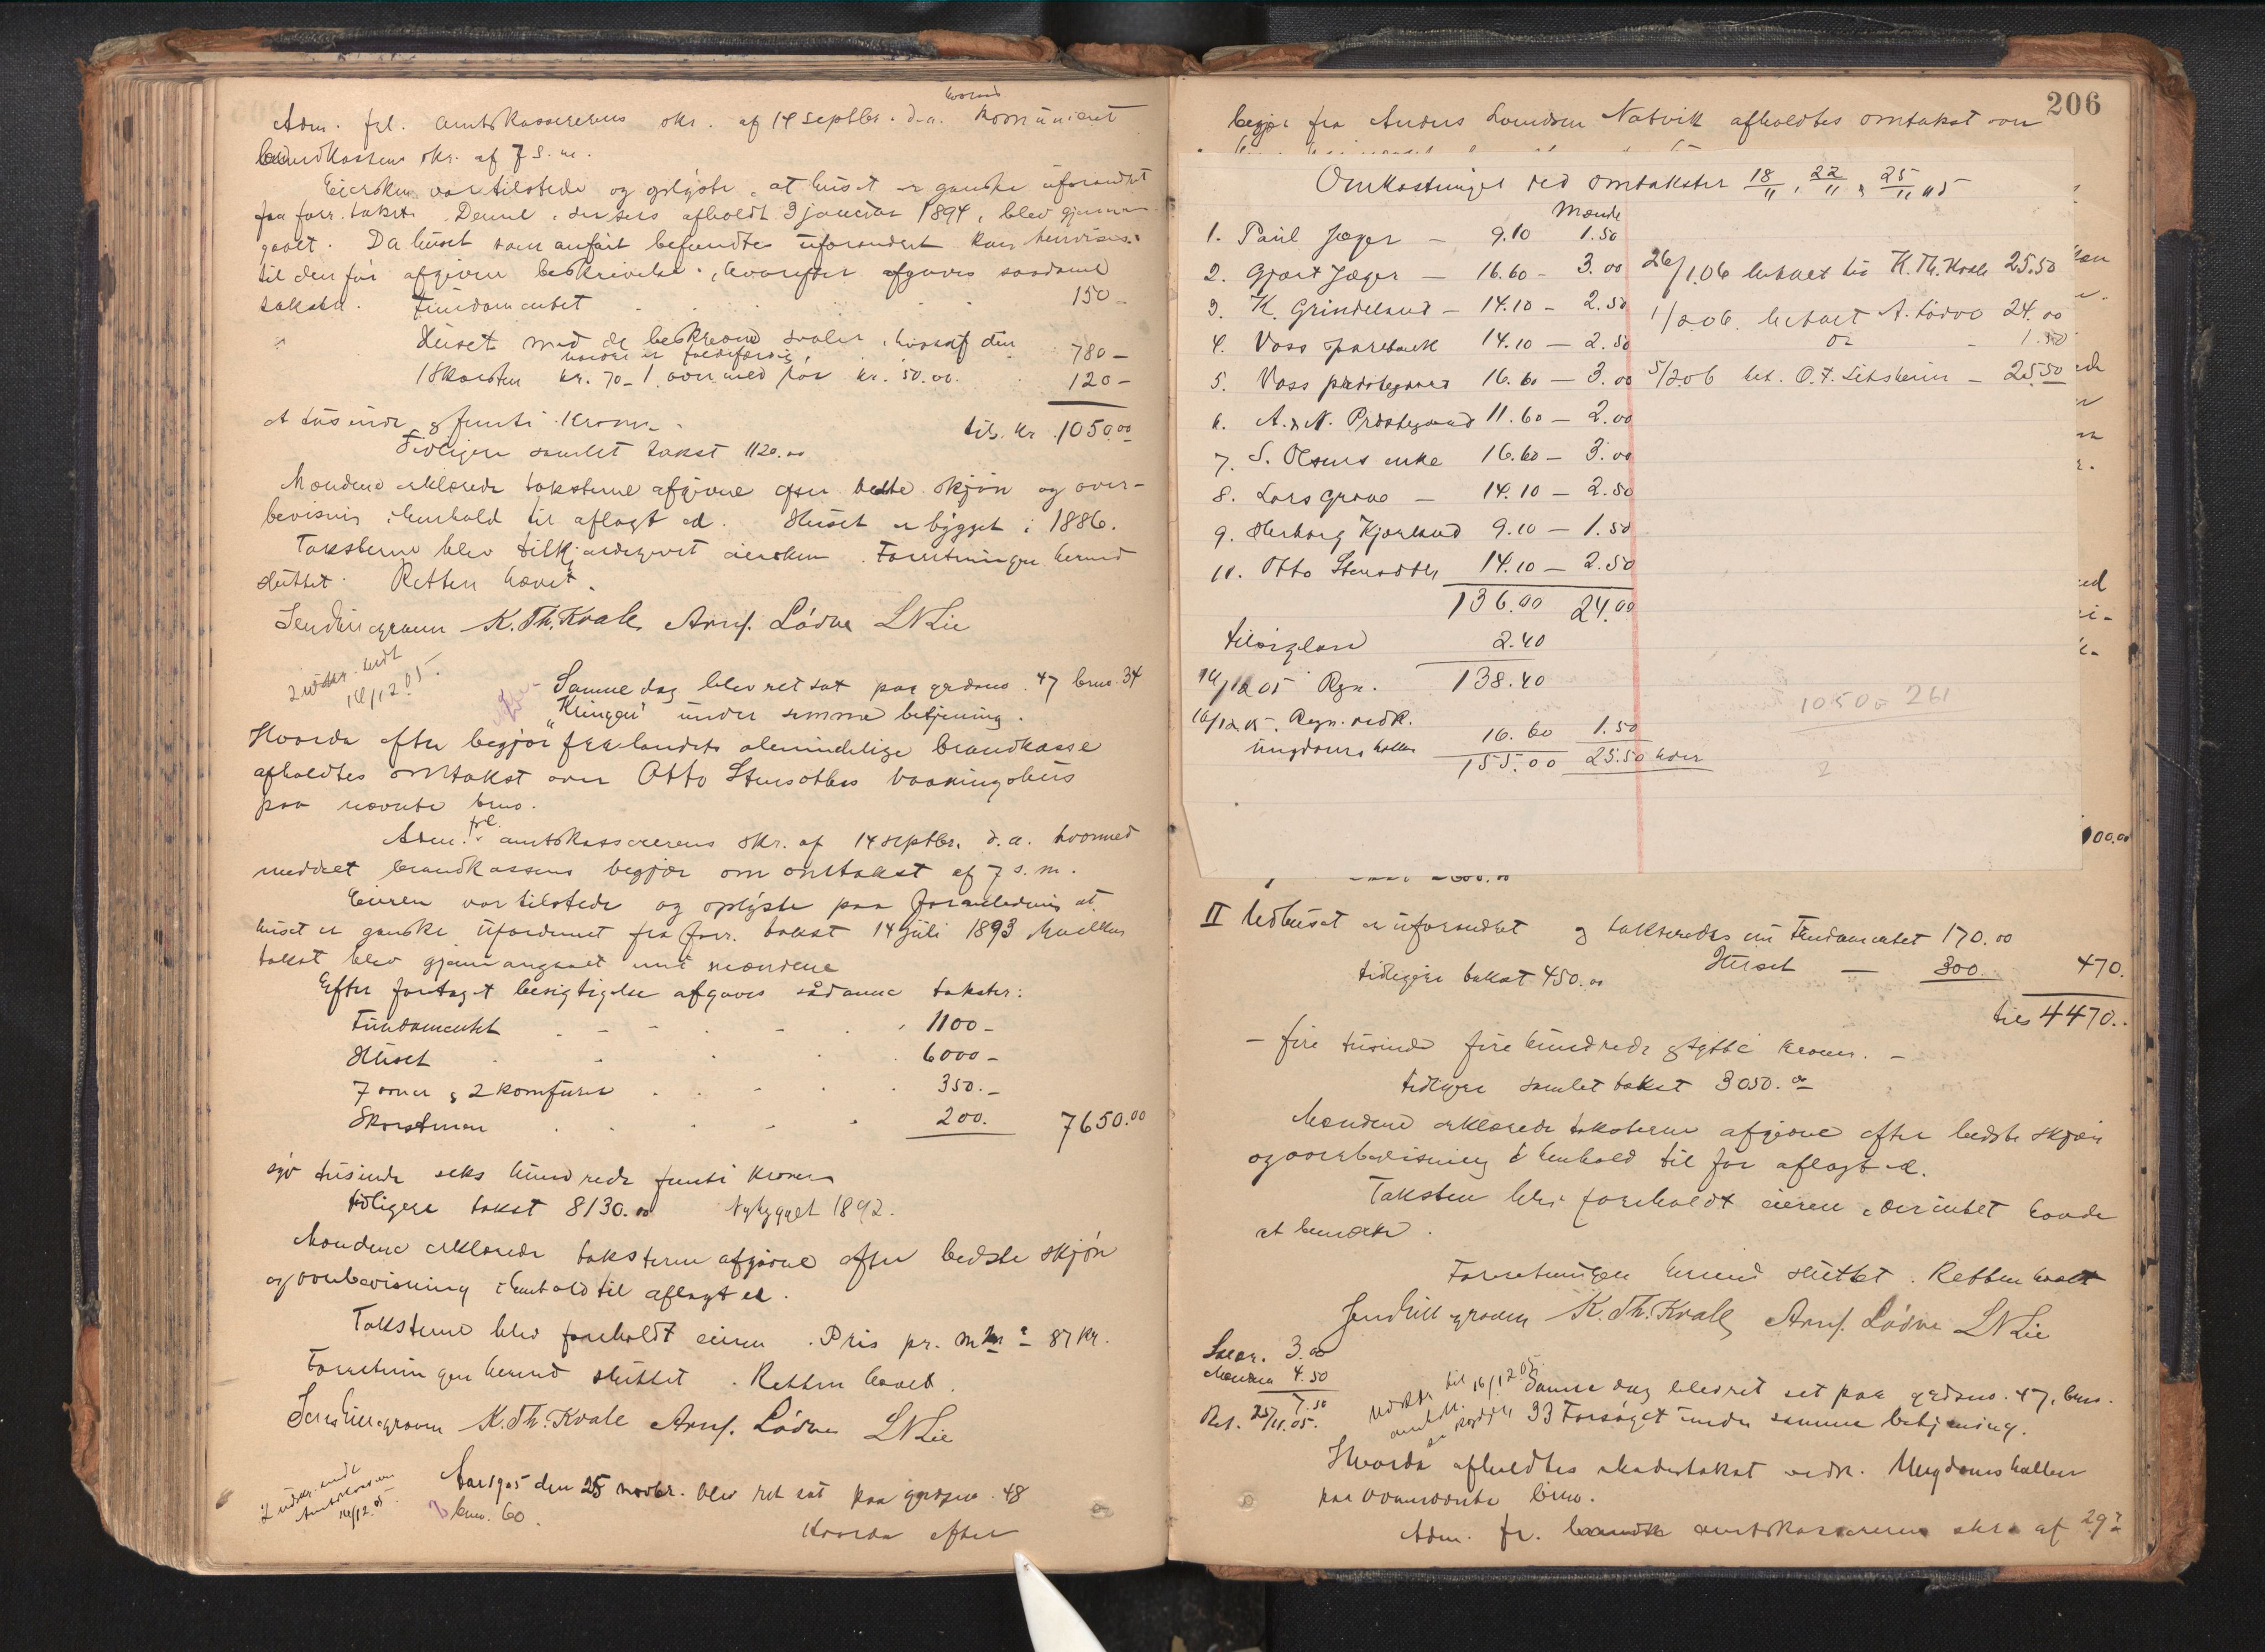 Adm. frl. amtskassererens skr. af 14 septbr. d.a. hvormed kommunicert
brandkassens skr. af 7 s.m.
Eiersken var tilstede og oplyste, at huset er ganske uforandret
fra forr. takst. Denne, der sees afholdt 3 januar 1894, blev gjennem-
gaaet. Da huset som anført befandtes uforandret kan henvises
til den før afgivne beskrivelse, hvorefter afgaves saadanne
takster. Fundamentet 150 –
Huset med de beskrevne svaler, hvoraf den
nordre er faldefærdig 780 –
1 Skorsten kr. 70 – 1 ovn med rør kr. 50.00. 120 –
et tusinde og femti kroner. tils. kr. 1050.00
Tidligere samlet takst 1120.00
Mændene erklærede taksterne afgivne efter bedste skjøn og over-
bevisning i henhold til aflagt ed. Huset er bygget i 1886.
Taksterne blev tilkjendegivet eiersken. Forretningen hermed
sluttet. Retten hævet.
K. Th. Kvale Arnf. Lødve LNLie
2 udskr. sendt
16/12 05.
Samme dag blev ret sat paa grdsno. 47 brno. 34
"Kringen" under samme betjening.
Hvorda efter begjær fra landets almindelige brandkasse
afholdtes omtakst over Otto Stensøthes vaaningshus
paa nævnte brno.
Adm. frl. amtskassererens skr. af 14 septbr. d.a. hvormed
meddelt brandkassens begjær om omtakst af 7 s.m.
Eieren var tilstede og oplyste paa foranledning at
huset er ganske uforandret fra forr. takst 14 juli 1893 hvilken
takst blev gjennemgaaet med mændene
Efter foretaget besigtigelse afgaves sådanne takster:
Fundamentet 1100 –
Huset 6000 –
7 ovner og 2 komfurer 350. –
Skorstenen 200. 7650.00
syv tusinde seks hundrede femti kroner
tidligere takst 8130.00 Nybygget 1892.
Mændene erklærede taksterne afgivne efter bedste skjøn
og overbevisning i henhold til aflagt ed.
Taksterne blev foreholdt eieren. Pris pr. m² 87 kr.
Forretningen hermed sluttet. Retten hævet.
K. Th. Kvale Arnf. Lødve LNLie
2 udskr. sendt
amtskassereren
16/12 05.
Aar 1905 den 25 novbr. blev ret sat paa grdsno. 48
brno. 60.
Hvorda efter
206
begjær fra Anders Natvik afholdtes omtakst over
Omkostninger ved omtakster 18/11, 22/11 & 25/11 05
Mænde
1. Paul Jæger – 9.10 1.50
2. Gjert Jæger – 16.60 – 3.00
3. K. Grindeland – 14.10 – 2.50
4. Voss sparebank 14.10 – 2.50
5. Voss prestegaard 16.60 – 3.00
6. A. & N. Prestegaard 11.60 – 2.00
7. S. Olsens enke 16.60 – 3.00
8. Lars Grove – 14.10 – 2.50
9. Herborg Kjørland 9.10 – 1.50
10. Otto Stensøthe 14.10 – 2.50
136.00 24.00
2.40
16/12 05 Regn. 138.40
16/12 05. Regn. vedk.
ungdomshallen 16.60 1.50
155.00 25.50 hver
26/1 06 betalt til K. Th. Kvale 25.50
1/2 06. betalt A. Lødve 24.00
1.50
5/2 06 bet. 25.50
1050
261
2
100.00
II Udhuset er uforandret og takseredes nu Fundamentet 170.00
Huset – 300. 470.
tidligere takst 450.00
tils 4470..
– fire tusinde fire hundrede og sytti kroner. –
tidligere samlet takst 3050.00
Mændene erklærede taksterne afgivne efter bedste skjøn
og overbevisning i henhold til før aflagt ed.
Taksten blev foreholdt eieren, der intet havde
at bemerke.
Forretningen hermed sluttet. Retten hævet
K. Th. Kvale Arnf. Lødve LNLie
Skr. 3.00
Mændene 4.50
7.50
Bet. 25/11.05.
16/12 05.
Samme dag blev ret sat paa grdsno. 47, brno.
33 Forsøget under samme betjening.
Hvorda afholdtes skadestakst vedk. Ungdomshallen
paa ovennævnte brno.
Adm. fr. amtskassererens skr. af 29.